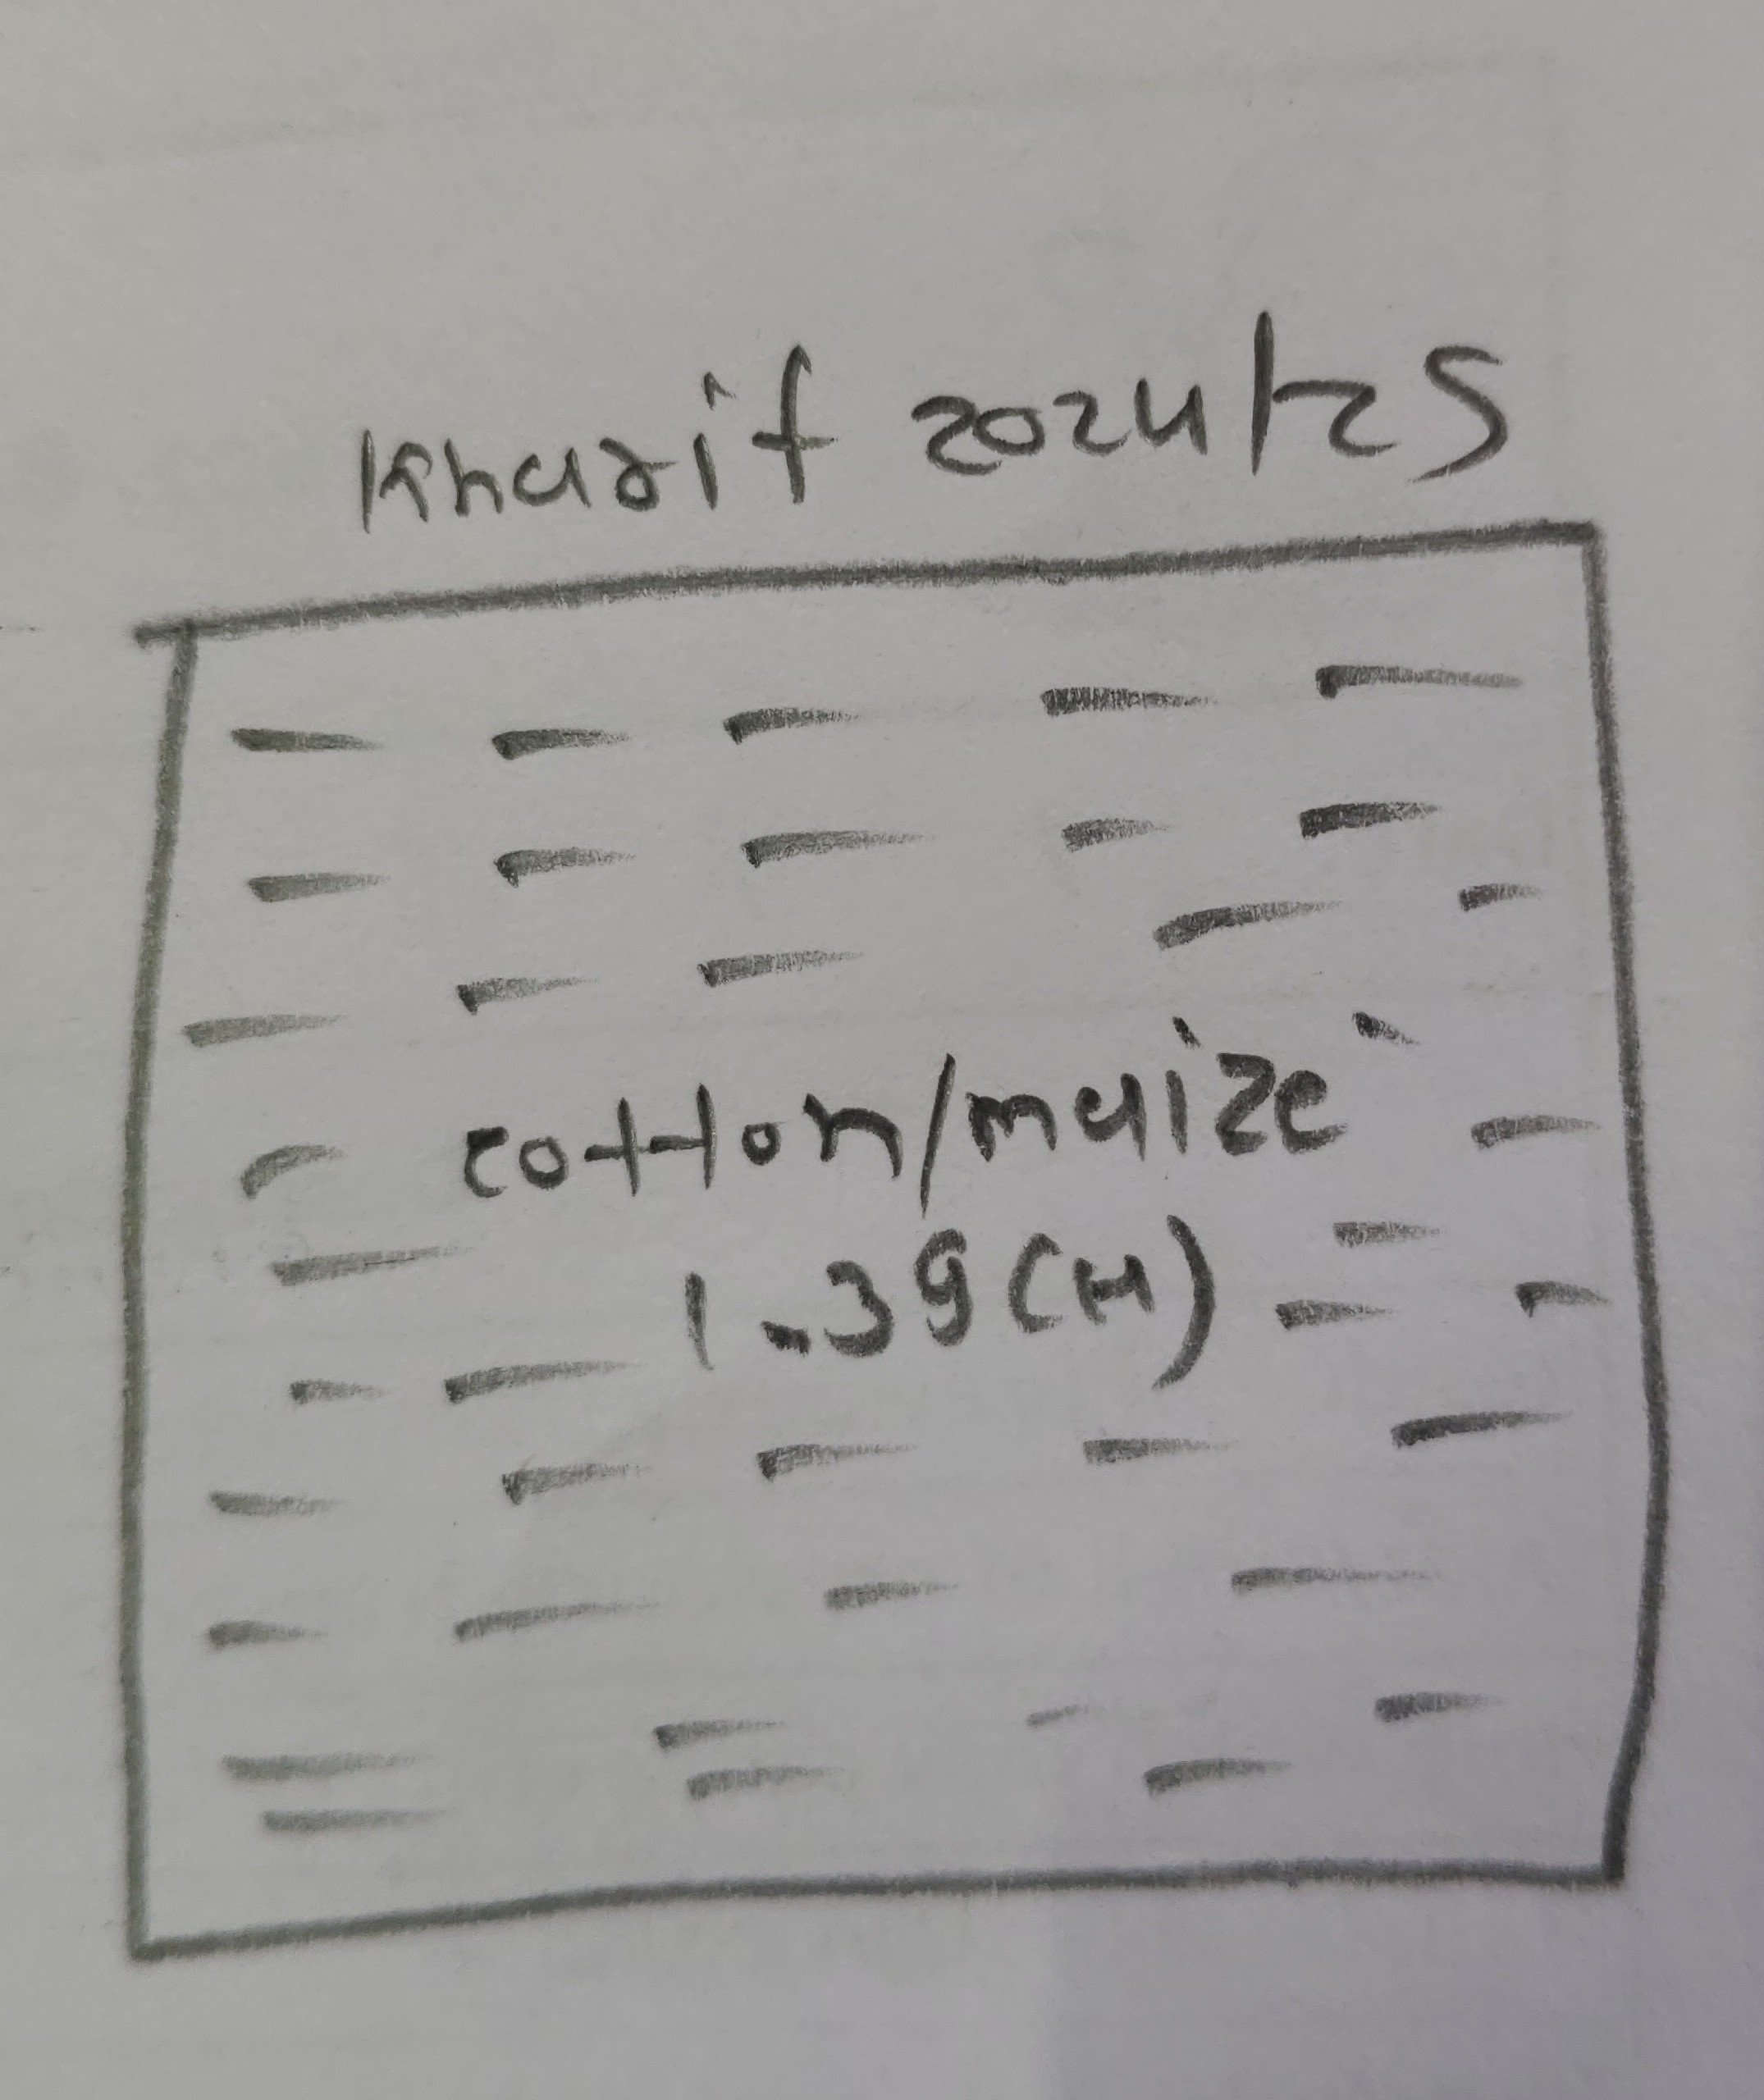 Kharif 2024/25
cotton/maize
1.39(H)